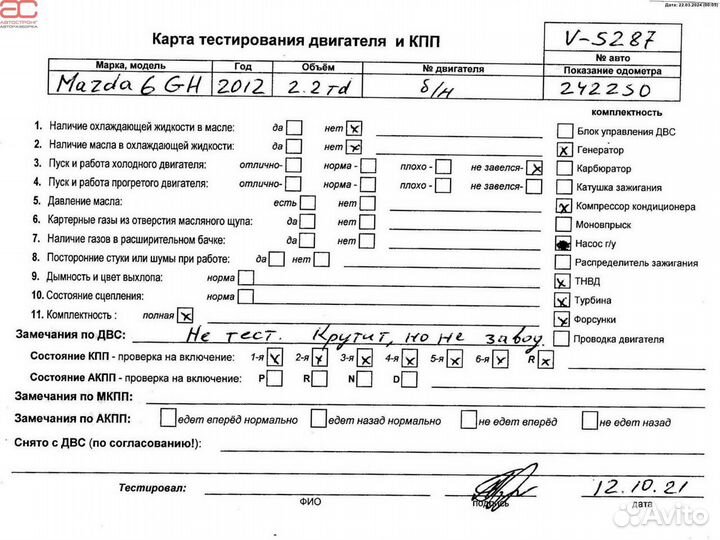 Дата: 22.03.2024 (00:05)
АС
АВТОСТРОНГ
АВТОРАЗБОРКА
Карта тестирования двигателя и КПП
V-5287
№ авто
Марка, модель Год Объём № двигателя Показание одометра
Mazda 6 GH 2012 2.2 td б/н 242250
комплектность
1. Наличие охлаждающей жидкости в масле: да нет x
Блок управления ДВС
2. Наличие масла в охлаждающей жидкости: да нет x
x Генератор
3. Пуск и работа холодного двигателя: отлично- норма - плохо - не завелся- x
Карбюратор
4. Пуск и работа прогретого двигателя: отлично- норма - плохо - не завелся-
Катушка зажигания
5. Давление масла: есть нет
x Компрессор кондиционера
6. Картерные газы из отверстия масляного щупа: да нет
Моновпрыск
7. Наличие газов в расширительном бачке: да нет
Насос г/у
8. Посторонние стуки или шумы при работе: да нет
Распределитель зажигания
9. Дымность и цвет выхлопа: норма
x ТНВД
10. Состояние сцепления: норма
x Турбина
11. Комплектность : полная x
x Форсунки
Замечания по ДВС: Не тест. Крутит, но не завод.
Проводка двигателя
Состояние КПП - проверка на включение: 1-я x 2-я x 3-я x 4-я x 5-я x 6-я x R x
Состояние АКПП - проверка на включение: P R N D
Замечания по МКПП:
Замечания по АКПП: едет вперёд нормально едет назад нормально не едет вперёд не едет назад
Снято с ДВС (по согласованию!):
Тестировал: 12.10.21
ФИО подпись дата
Avito